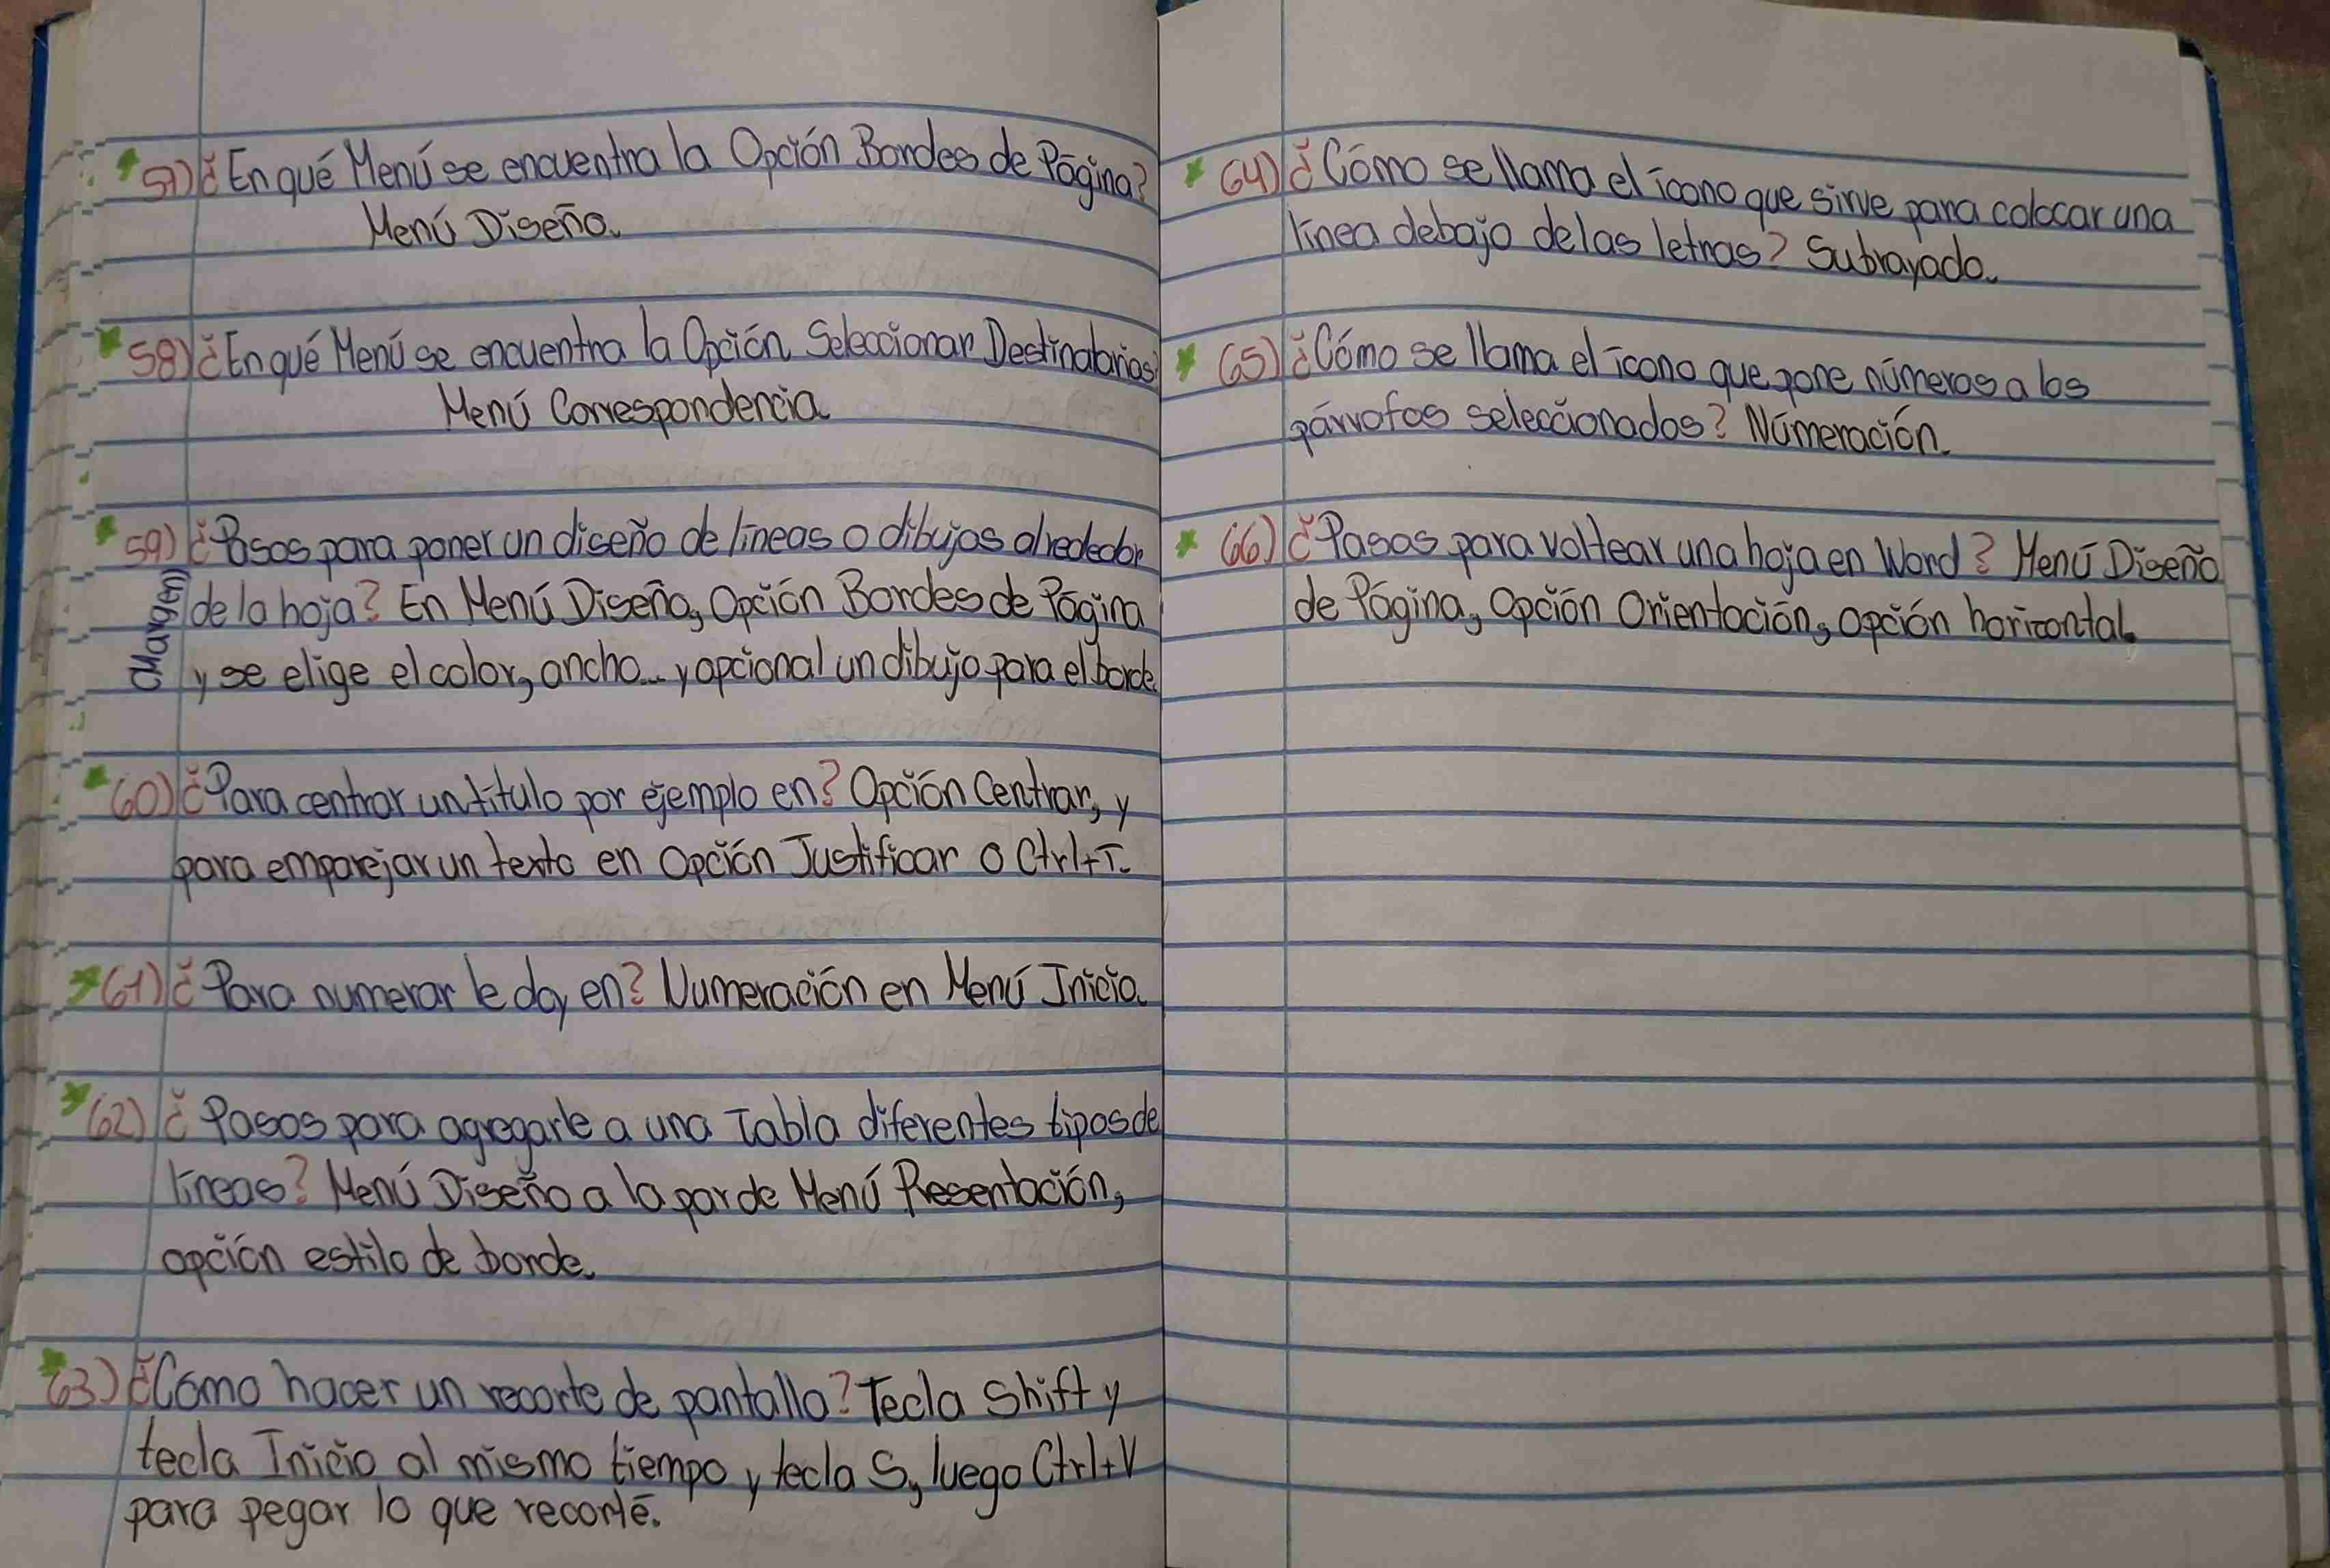 57) ¿En qué Menú se encuentra la Opción Bordes de Página?
Menú Diseño.
58) ¿En qué Menú se encuentra la Opción Seleccionar Destinatarios?
Menú Correspondencia.
59) ¿Pasos para poner un diseño de líneas o dibujos alrededor
(Margen) de la hoja? En Menú Diseño, Opción Bordes de Página
y se elige el color, ancho... y opcional un dibujo para el borde.
60) ¿Para centrar un título por ejemplo en? Opción Centrar, y
para emparejar un texto en Opción Justificar o Ctrl+T.
61) ¿Para numerar le doy en? Numeración en Menú Inicio.
62) ¿Pasos para agregarle a una Tabla diferentes tipos de
líneas? Menú Diseño a la par de Menú Presentación,
opción estilo de borde.
63) ¿Cómo hacer un recorte de pantalla? Tecla Shift y
tecla Inicio al mismo tiempo y tecla S, luego Ctrl+V
para pegar lo que recorté.
64) ¿Cómo se llama el ícono que sirve para colocar una
línea debajo de las letras? Subrayado.
65) ¿Cómo se llama el ícono que pone números a los
párrafos seleccionados? Númeración.
66) ¿Pasos para voltear una hoja en Word? Menú Diseño
de Página, Opción Orientación, opción horizontal.